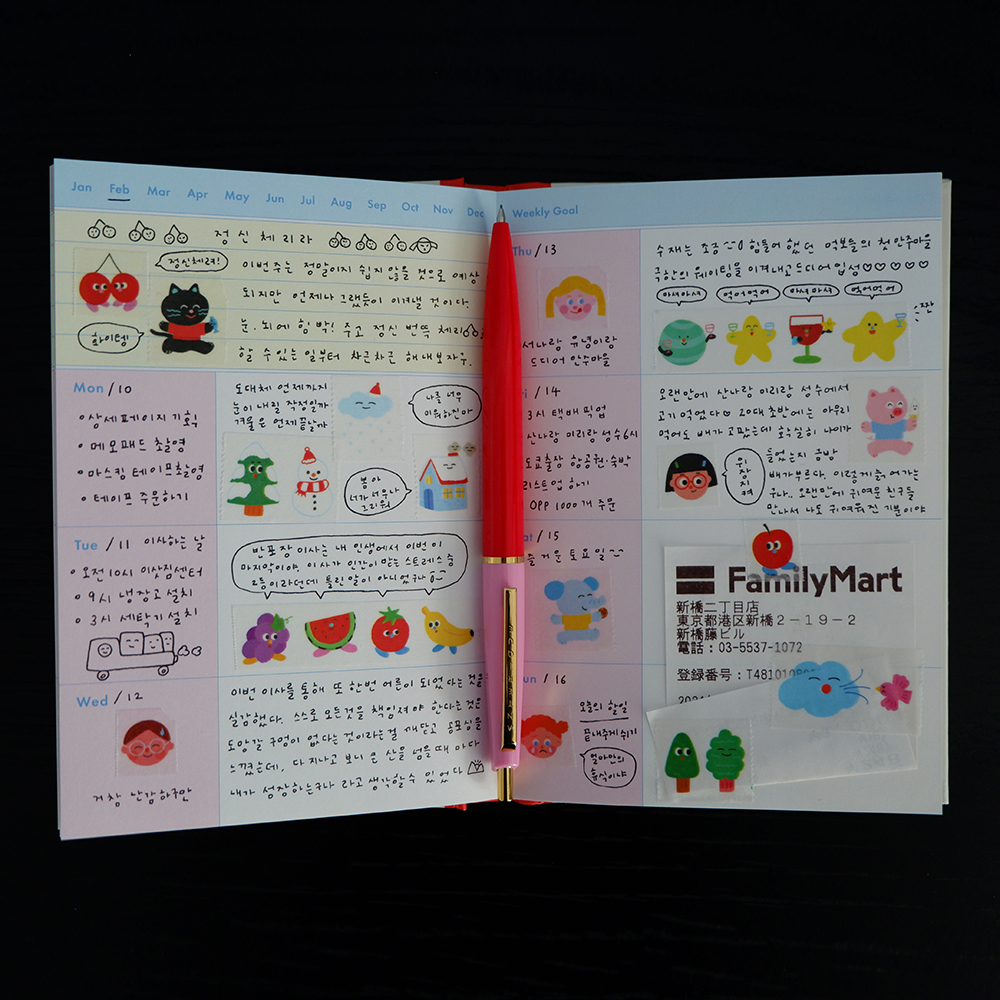 Jan Feb Mar Apr May Jun Jul Aug Sep Oct Nov Dec
정신체리라
정신체려!
화이텡
이번주는 정말이지 쉽지 않을 것으로 예상
되지만 언제나 그랬듯이 이겨낼 것이다.
눈, 뇌에 힘 빡! 주고 정신 번뜩 체리
할 수 있는 일부터 차근차근 해내보자우.
Mon / 10
• 상세페이지 기획
• 메모패드 촬영
• 마스킹 테이프 촬영
• 테이프 주문하기
도대체 언제까지
눈이 내릴 작정일까
겨울은 언제끝날까
나를 너무
미워하진마
봄아
너가 너무나
그리워
Tue / 11 이사하는 날
• 오전 10시 이삿짐센터
• 9시 냉장고 설치
• 3시 세탁기 설치
반포장 이사는 내 인생에서 이번이
마지막이야. 이사가 인간이 받는 스트레스 중
2등이라던데 틀린 말이 아니었구나
Wed / 12
거참 난감하구만
이번 이사를 통해 또 한번 어른이 되었다는 것을
실감했다. 스스로 모든것을 책임져야 한다는 것은
도망갈 구멍이 없다는 것이라는걸 깨닫고 공포심을
느꼈는데, 다 지나고 보니 큰 산을 넘을 때 마다
내가 성장하는구나 라고 생각할수 있었다
Weekly Goal
Thu / 13
서나랑 유녕이랑
드디어 안주마을
수재는 조금 힘들어했던 먹보들의 첫 안주마을
극한의 웨이팅을 이겨내고드디어 입성♡♡♡♡♡
마셔마셔
먹어먹어
마셔마셔
먹어먹어
짠
Fri / 14
3시 택배 픽업
산나랑 미리랑 성수 6시
도쿄출장 항공권, 숙박
리스트업 하기
OPP 1000개 주문
오랜만에 산나랑 미리랑 성수에서
고기 먹었다♡ 20대 초반에는 아무리
먹어도 배가 고팠는데 확실히 나이가
들었는지 금방
배가부르다. 이렇게 늙어가는
구나.. 오랜만에 귀여운 친구들
만나서 나도 귀여워진 기분이야
Sat / 15
즐거운 토요일
FamilyMart
新橋二丁目店
東京都港区新橋2-19-2
新橋藤ビル
電話:03-5537-1072
登録番号:T481010
Sun / 16
오늘의 할일
끝내주게 쉬기
얼마만의
휴식이냐